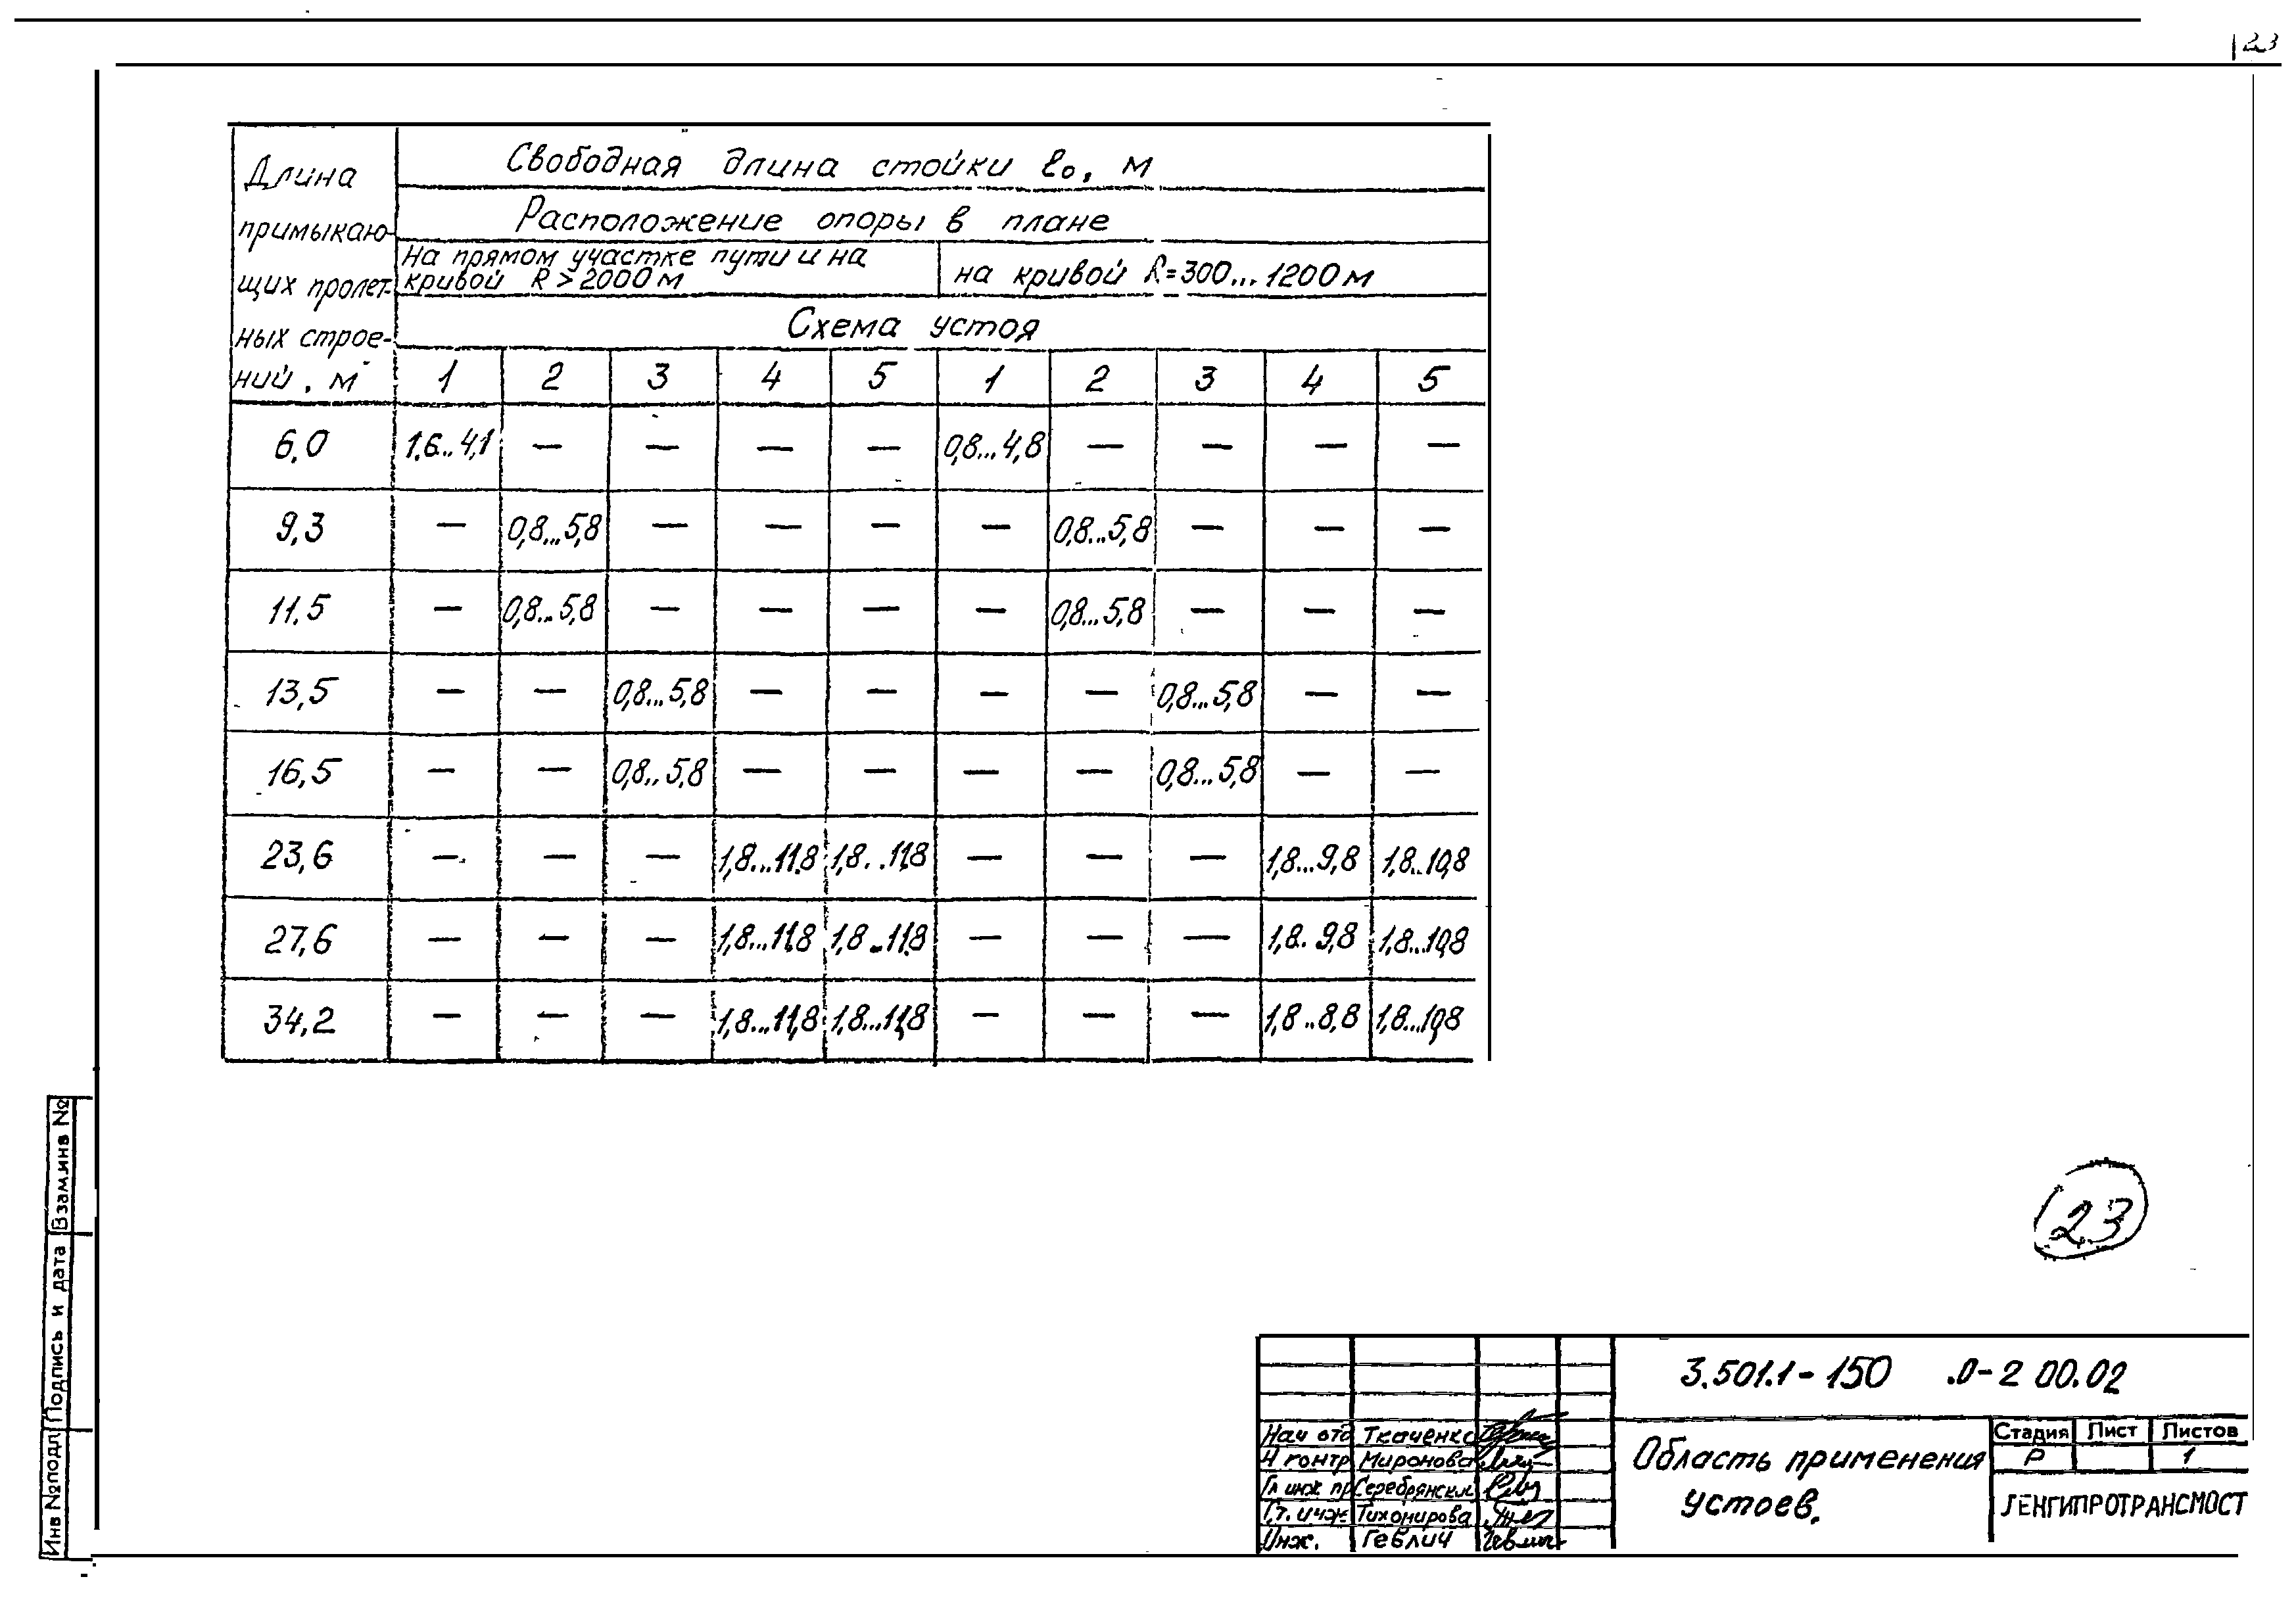 23
Длина примыкаю-щих пролет-ных строе-ний, м
Свободная длина стойки ℓо, м
Расположение опоры в плане
На прямом участке пути и на
кривой R > 2000 м
на кривой R=300...1200 м
Схема устоя
1 2 3 4 5 1 2 3 4 5
6,0 1.6..4,1 — — — — 0,8...4,8 — — — —
9,3 — 0,8...5,8 — — — — 0,8...5,8 — — —
11.5 — 0,8...5,8 — — — — 0,8...5,8 — — —
13,5 — — 0,8...5,8 — — — — 0,8...5,8 — —
16,5 — — 0,8..5,8 — — — — 0,8...5,8 — —
23,6 — — — 1,8...11.8 1,8..11,8 — — — 1,8...9,8 1,8..10,8
27,6 — — — 1,8...11,8 1,8..11,8 — — — 1,8..9,8 1,8..10,8
34,2 — — — 1,8...11,8 1,8...11,8 — — — 1,8..8,8 1,8...10,8
23
Взам.инв №
Подпись и дата
Инв №подл
3.501.1-150 .0-2 00.02
Нач отд Ткаченко
Н контр Миронова
Гл инж пр Серебрянский
Ст. инж Тихомирова
Инж. Гевлич
Область применения
устоев.
Стадия Лист Листов
Р 1
ЛЕНГИПРОТРАНСМОСТ